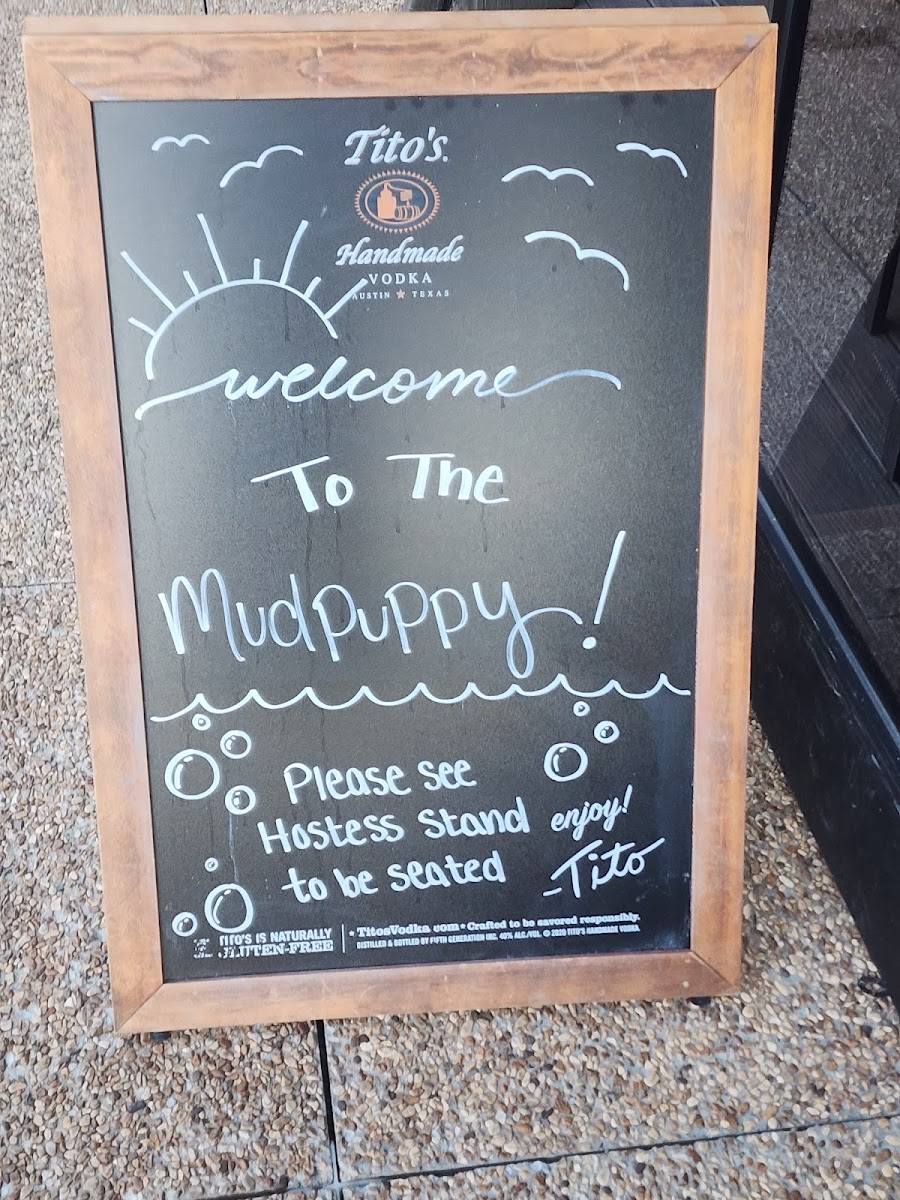 Tito's.
Handmade
VODKA
AUSTIN ★ TEXAS
welcome
To The
Mudpuppy!
Please see
Hostess Stand
to be seated
enjoy!
-Tito
TITO'S IS NATURALLY
GLUTEN-FREE
• TitosVodka.com • Crafted to be savored responsibly.
DISTILLED & BOTTLED BY FIFTH GENERATION INC. 40% ALC./VOL. © 2020 TITO'S HANDMADE VODKA.